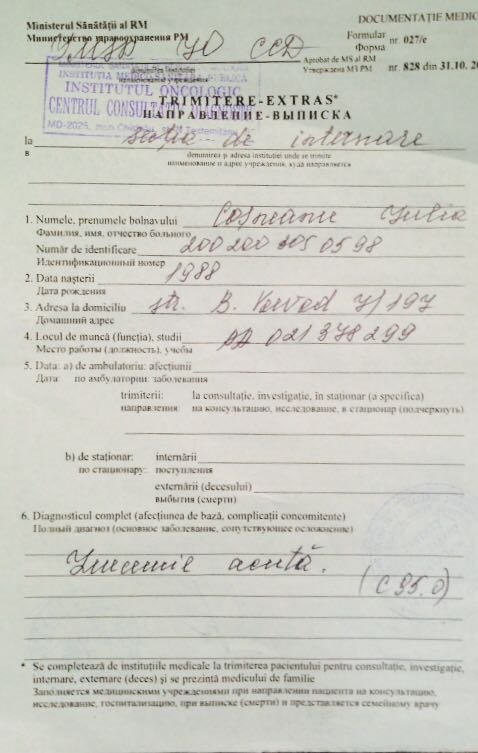 DOCUMENTAŢIE MEDIC
Ministerul Sănătăţii al RM
Министерство здравоохранения РМ
Formular
Форма
nr. 027/e
IMSP IO CCD
Aprobat de MS al RM
Утверждена МЗ РМ
nr. 828 din 31.10.20
INSTITUŢIA MEDICO
INSTITUTUL ONCOLOGIC
CENTRUL CONSULTATIV DIAGNOSTIC
MD-2025, mun. Chişinău, Testemiţanu
TRIMITERE-EXTRAS*
НАПРАВЛЕНИЕ-ВЫПИСКА
la Secţia de internare
в
denumirea şi adresa instituţiei unde se trimite
наименование и адрес учреждения, куда направляется
1. Numele, prenumele bolnavului Iulia
Фамилия, имя, отчество больного
Număr de identificare
Идентификационный номер
2. Data naşterii 1988
Дата рождения
3. Adresa la domiciliu str. B. 7/197
Домашний адрес
4. Locul de muncă (funcţia), studii 021378299
Место работы (должность), учебы
5. Data: a) de ambulatoriu: afecţiunii
Дата: по амбулатории: заболевания
trimiterii: la consultaţie, investigaţie, în staţionar (a specifica)
направления: на консультацию, исследование, в стационар (подчеркнуть)
b) de staţionar: internării
по стационару: поступления
externării (decesului)
выбытия (смерти)
6. Diagnosticul complet (afecţiunea de bază, complicaţii concomitente)
Полный диагноз (основное заболевание, сопутствующее осложнение)
Leucemie acută.
(C 95.0)
* Se completează de instituţiile medicale la trimiterea pacientului pentru consultaţie, investigaţie,
internare, externare (deces) şi se prezintă medicului de familie
Заполняется медицинскими учреждениями при направлении пациента на консультацию,
исследование, госпитализацию, при выписке (смерти) и представляется семейному врачу